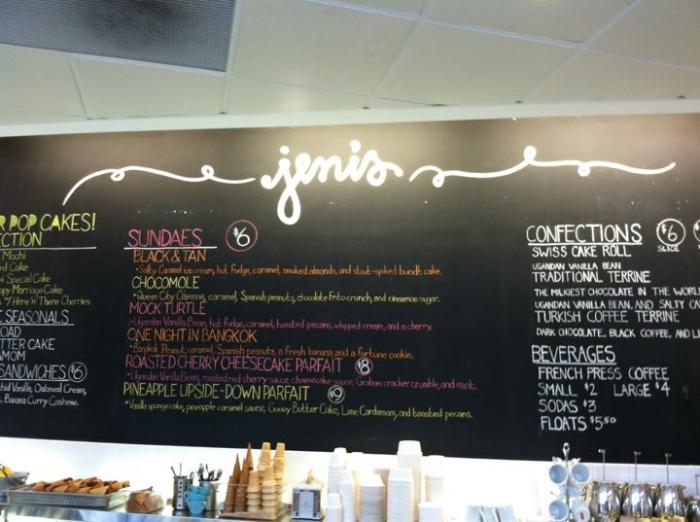 jenis
R POP CAKES!
CTION
Mochi
d Cake
Special Cake
ppy Marriage Cake
& 7 Here 'n' There Cherries
SEASONALS
OAD
TTER CAKE
AMOM
SANDWICHES $6
Vanilla, Oatmeal Cream,
Banana Curry Cashew.
SUNDAES $6
BLACK & TAN
• Salty Caramel ice cream, hot fudge, caramel, smoked almonds, and stout-spiked bundt cake.
CHOCOMOLE
• Queen City Cayenne, caramel, Spanish peanuts, chocolate Frito crunch, and cinnamon sugar.
MOCK TURTLE
• Ugandan Vanilla Bean, hot fudge, caramel, toasted pecans, whipped cream, and a cherry.
ONE NIGHT IN BANGKOK
• Bangkok Peanut, caramel, Spanish peanuts, a fresh banana and a fortune cookie.
ROASTED CHERRY CHEESECAKE PARFAIT $8
• Ugandan Vanilla Bean, roasted red cherry sauce, cheesecake sauce, Graham cracker crumble, and mint.
PINEAPPLE UPSIDE-DOWN PARFAIT $9
• Vanilla sponge cake, pineapple caramel sauce, Gooey Butter Cake, Lime Cardamom, and toasted pecans.
CONFECTIONS $6
SLICE
SWISS CAKE ROLL
UGANDAN VANILLA BEAN
TRADITIONAL TERRINE
THE MILKIEST CHOCOLATE IN THE WORL
UGANDAN VANILLA BEAN, AND SALTY C
TURKISH COFFEE TERRINE
DARK CHOCOLATE, BLACK COFFEE, AND L
BEVERAGES
FRENCH PRESS COFFEE
SMALL $2 LARGE $4
SODAS $3
FLOATS $5.50